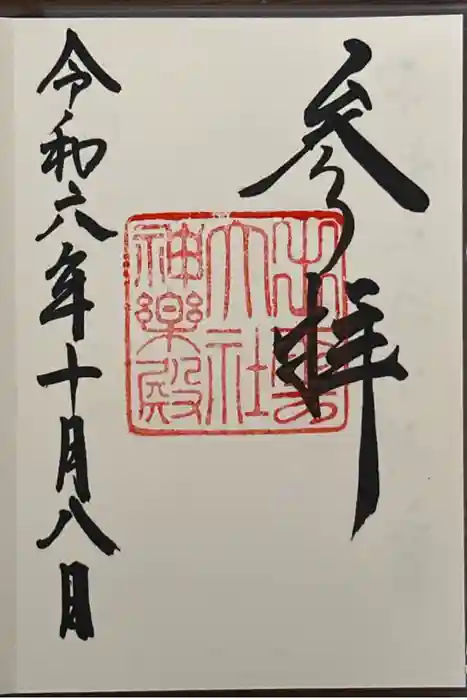 参拝
出雲
大社
神樂殿
令和六年十月八日